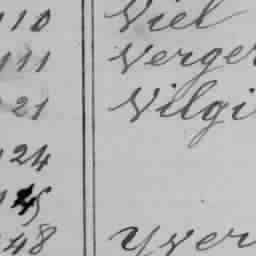 110 Viel
111 Verger
121 Vilgi
124
145
148 Yver